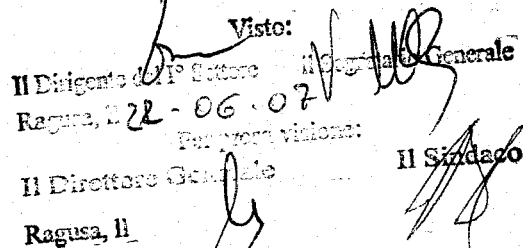 Visto:
Il Dirigente del I° Settore Il Segretario Generale
Ragusa, Il 22 - 06 . 07
Per presa visione:
Il Direttore Generale Il Sindaco
Ragusa, Il